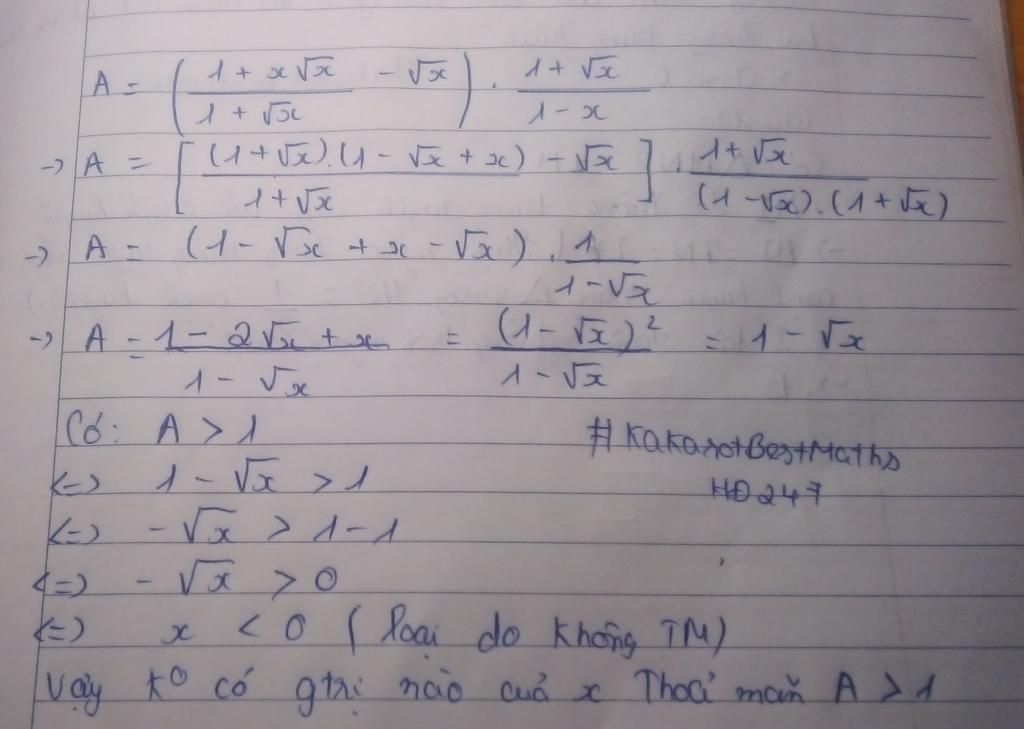 A = ( (1 + x√x)/(1 + √x) - √x ) . (1 + √x)/(1 - x)
-> A = [ ((1 + √x).(1 - √x + x))/(1 + √x) - √x ] . (1 + √x)/((1 - √x).(1 + √x))
-> A = (1 - √x + x - √x) . 1/(1 - √x)
-> A = (1 - 2√x + x)/(1 - √x) = (1 - √x)²/(1 - √x) = 1 - √x
Có: A > 1
<=> 1 - √x > 1
#KakarotBestMaths
<=> -√x > 1 - 1
HĐ247
<=> -√x > 0
<=> x < 0 (loại do không TM)
Vậy k° có gtrị nào cuả x Thoả mãn A > 1